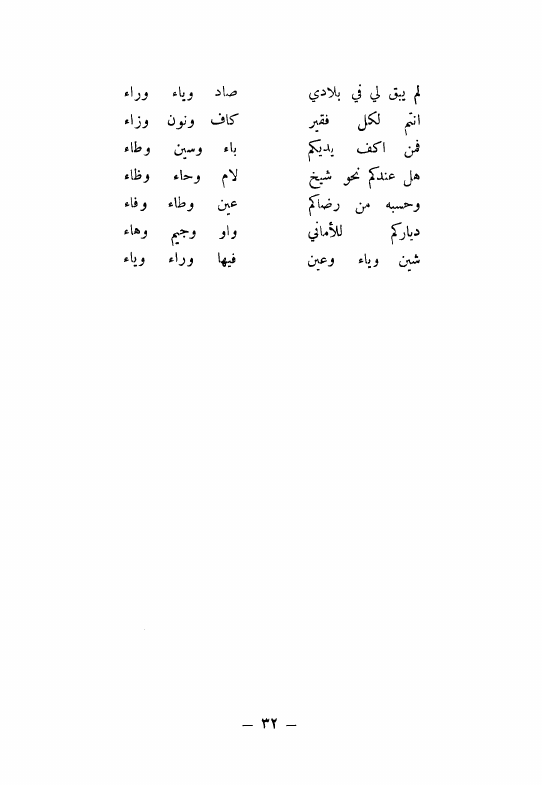 لم يبق لي في بلادي صاد وياء وراء
انتم لكل فقير كاف ونون وزاء
فمن اكف يديكم باء وسين وطاء
هل عندكم نحو شيخ لام وحاء وظاء
وحسبه من رضاكم عين وطاء وفاء
دياركم للأماني واو وجيم وهاء
شين وياء وعين فيها وراء وياء
— ٣٢ —